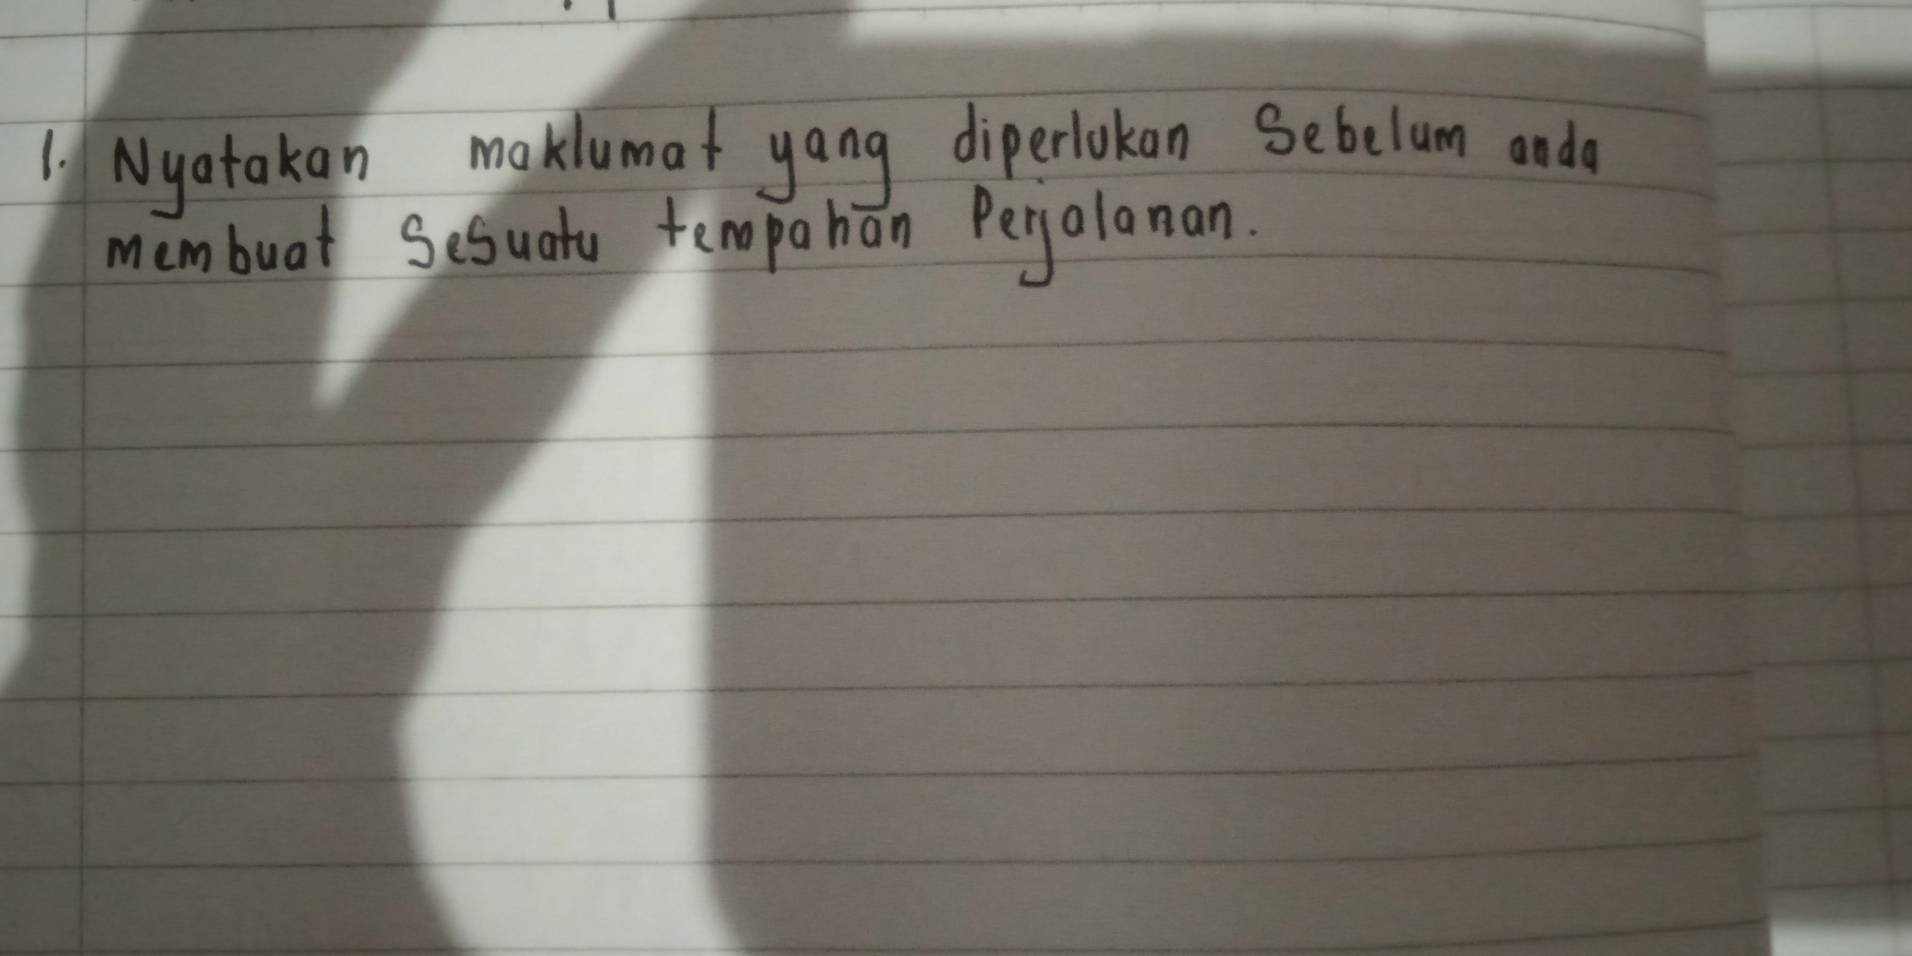 1. Nyatakan maklumat yang diperlukan Sebelum anda
membuat Sesuatu tempahan Perjalanan.